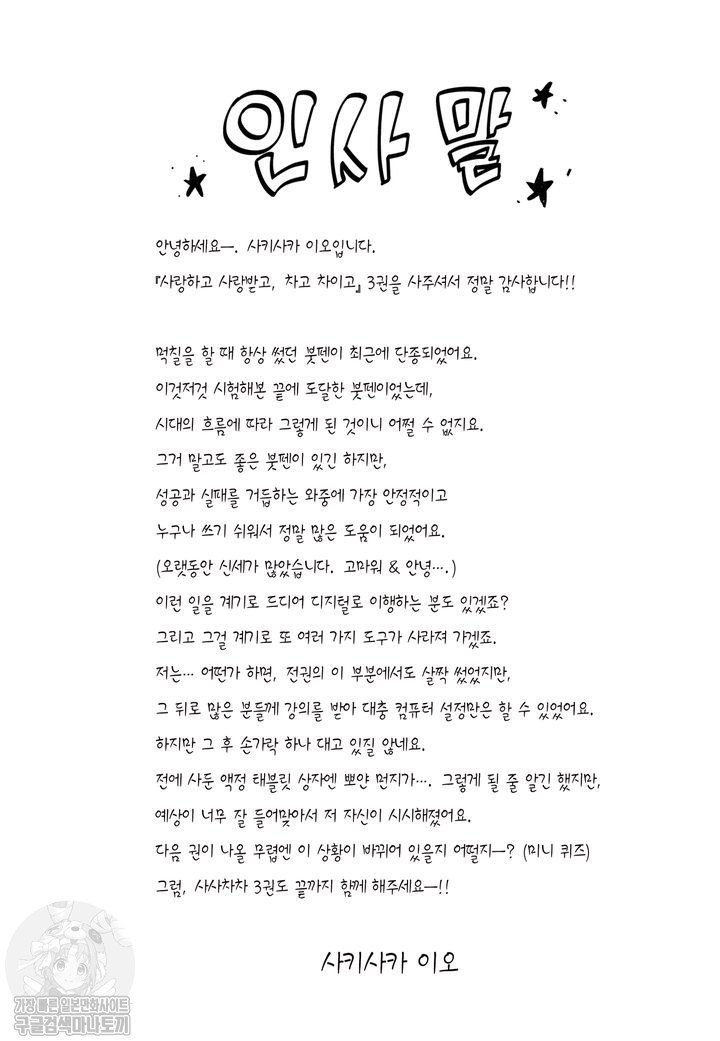 인사말
안녕하세요—. 사키사카 이오입니다.
『사랑하고 사랑받고, 차고 차이고』 3권을 사주셔서 정말 감사합니다!!
먹칠을 할 때 항상 썼던 붓펜이 최근에 단종되었어요.
이것저것 시험해본 끝에 도달한 붓펜이었는데,
시대의 흐름에 따라 그렇게 된 것이니 어쩔 수 없지요.
그거 말고도 좋은 붓펜이 있긴 하지만,
성공과 실패를 거듭하는 와중에 가장 안정적이고
누구나 쓰기 쉬워서 정말 많은 도움이 되었어요.
(오랫동안 신세가 많았습니다. 고마워 & 안녕….)
이런 일을 계기로 드디어 디지털로 이행하는 분도 있겠죠?
그리고 그걸 계기로 또 여러 가지 도구가 사라져 가겠죠.
저는… 어떤가 하면, 전권의 이 부분에서도 살짝 썼었지만,
그 뒤로 많은 분들께 강의를 받아 대충 컴퓨터 설정만은 할 수 있었어요.
하지만 그 후 손가락 하나 대고 있질 않네요.
전에 사둔 액정 태블릿 상자엔 뽀얀 먼지가…. 그렇게 될 줄 알긴 했지만,
예상이 너무 잘 들어맞아서 저 자신이 시시해졌어요.
다음 권이 나올 무렵엔 이 상황이 바뀌어 있을지 어떨지—? (미니 퀴즈)
그럼, 사사차차 3권도 끝까지 함께 해주세요—!!
사키사카 이오
가장 빠른 일본만화사이트
구글검색마나토끼